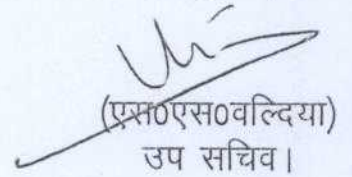 (एस0एस0वल्दिया)
उप सचिव।